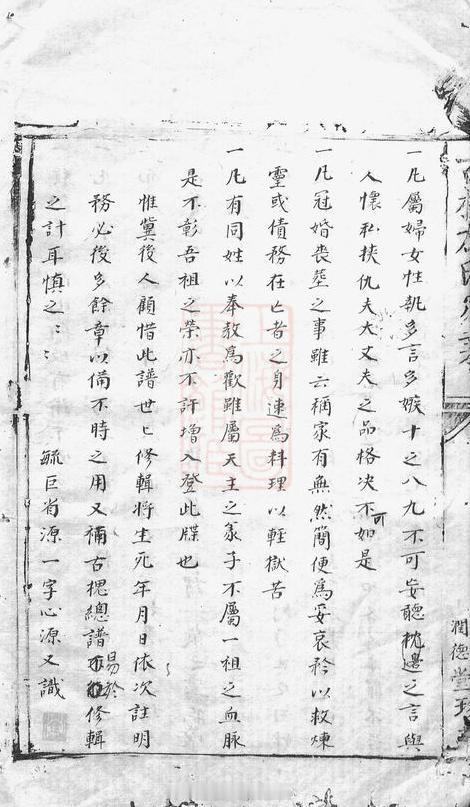 一凡屬婦女性執多言多嫉十之八九不可妄聽枕邊之言與
人懷私挾仇夫大丈夫之品格決不可如是
一凡冠婚喪塟之事雖云稱家有無然簡便為妥哀矜以救煉
靈或債務在亡者之身速為料理以輕獄苦
一凡有同姓以奉教為歡雖屬天主之家子不屬一祖之血脉
是不彰吾祖之榮亦不許增入登此牒也
惟冀後人顧惜此譜世世修輯將生死年月日依次註明
務必後多餘章以備不時之用又補古槐總譜易於修輯
之計耳慎之：：
毓巨省源一字心源又識
潤德堂